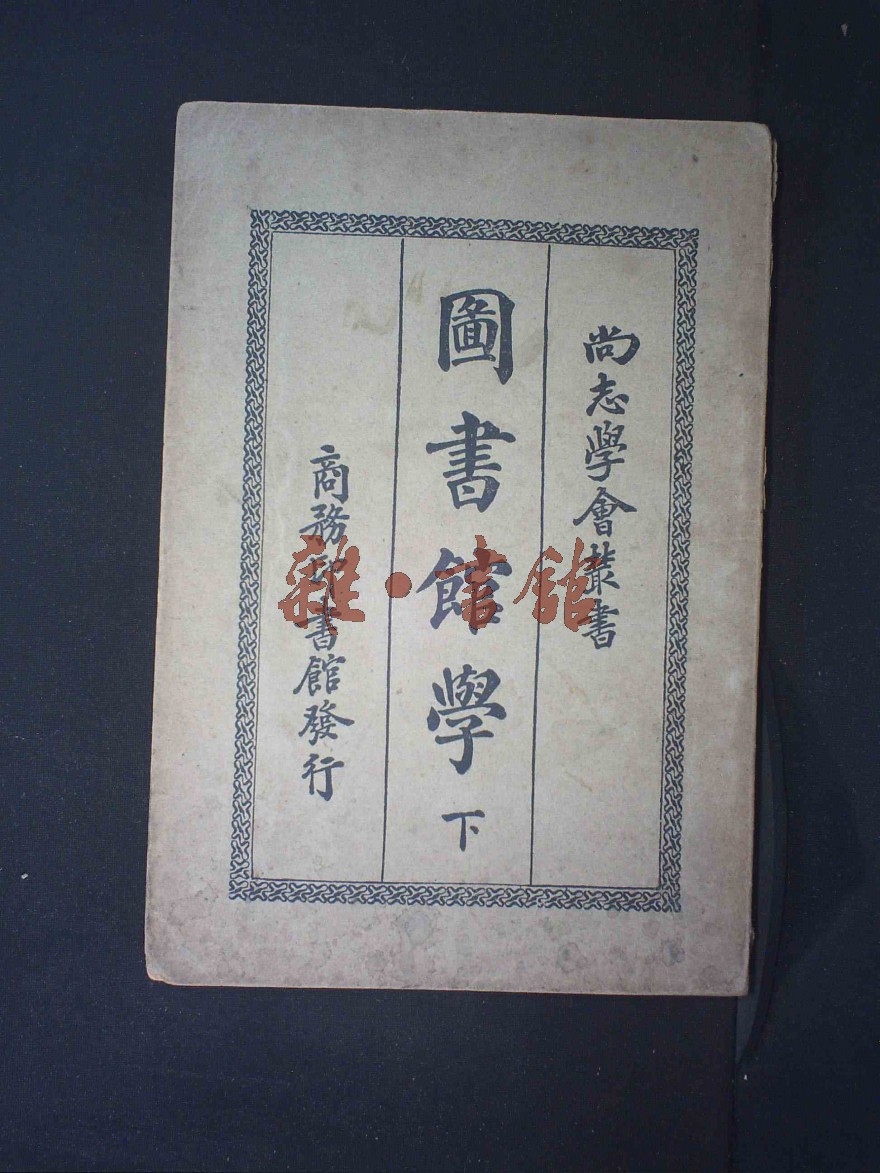 尚志學會叢書
圖書館學 下
商務印書館發行
雜·書館